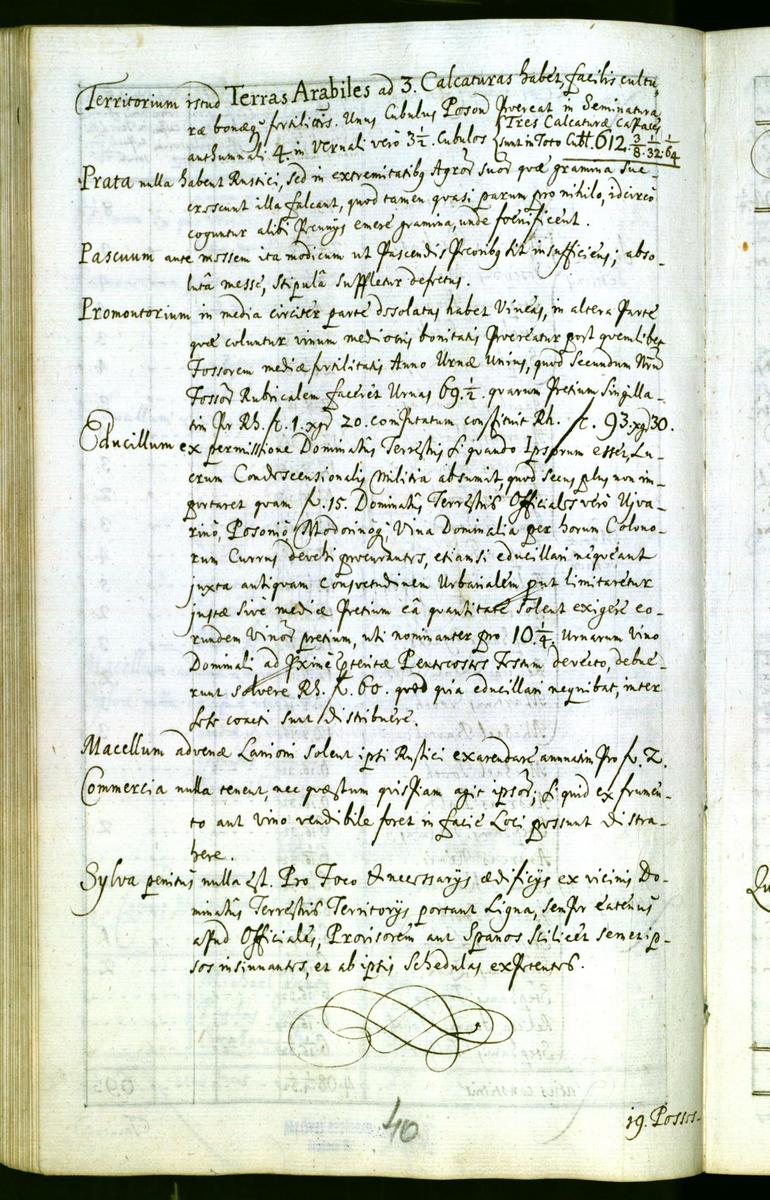 Territorium istud Terras Arabiles ad 3. Calcaturas habet, facilis cultu-
ræ bonæq₃ fertilitis. Unus Cubulus Poson Procreat in Seminatura
authumnali 4. in Vernali verò 3½. Cubulos { Tres Calcaturæ Capaces sunt in Toto Cubl. 612. 3/8. 1/32. 1/64
Prata nulla habent Rustici, sed in extremitatibq Agror suor quæ gramina suc-
crescunt illa falcant, quod tamen quasi parum pro nihilo, idcirco
coguntur alibi Pecunijs emere gramina, unde foenificent.
Pascuum ante messem ita modicum ut Pascendis Pecoribq sit insufficiens; abso-
lutâ messe, stipulâ suffletur defectus.
Promontorium in media circiter parte desolatas habet Vineas, in altera Parte
quæ coluntur vinum mediocris bonitatis Procreatur post quemlibet
Fossorem mediæ fertilitatis Anno Urnæ Unius, quod secundum Nrum
Fossor Rubricalem faceret Urnas 69.½. quarum Pretium singilla-
tim Pr Rh. f. 1. xgr 20. computatum constituit Rh. f. 93. xgr 30.
Educillum ex permissione Dominatus Terrestris si quando Ipsorum esset, Lu-
crum Condescensionalis Militia absumit, quod secus plus non im-
portaret quam f. 15. Dominatus Terrestris Officiales verò Ujva-
rino, Posonio Modorinoq; Vina Dominalia per horum Colono-
rum Currus devehi procurantes, etiamsi educillari nequeant
juxta antiquam consvetudinem Urbarialem put limitaretur
justæ sive mediæ Pretium eâ quantitate solent exigere eo-
rundem Vinor pretium, uti nominanter pro 10¼ Urnarum Vino
Dominali ad Pxime pteritæ Pentecostes Festum devecto, debue-
runt solvere Rh. f. 60. quod quia educillari nequibat, inter
sese coacti sunt distribuere.
Macellum advenæ Lanioni solent ipsi Rustici exarendare annuatim Pro f. 2.
Commercia nulla tenent, nec quæstum quispiam agit ipsor; si quid ex frumen-
to aut vino vendibile foret in facie Loci possunt distra-
here.
Sylva penitus nulla est. Pro Foco & necessarijs ædificijs ex vicinis Do-
minatus Terrestris Territorijs portant Ligna, semper eatenus
apud Officiales, Provisorem aut Spanos scilicet semetip-
sos insinuantes, et ab iptis Schedulas expetentes.
40
19. Posses-